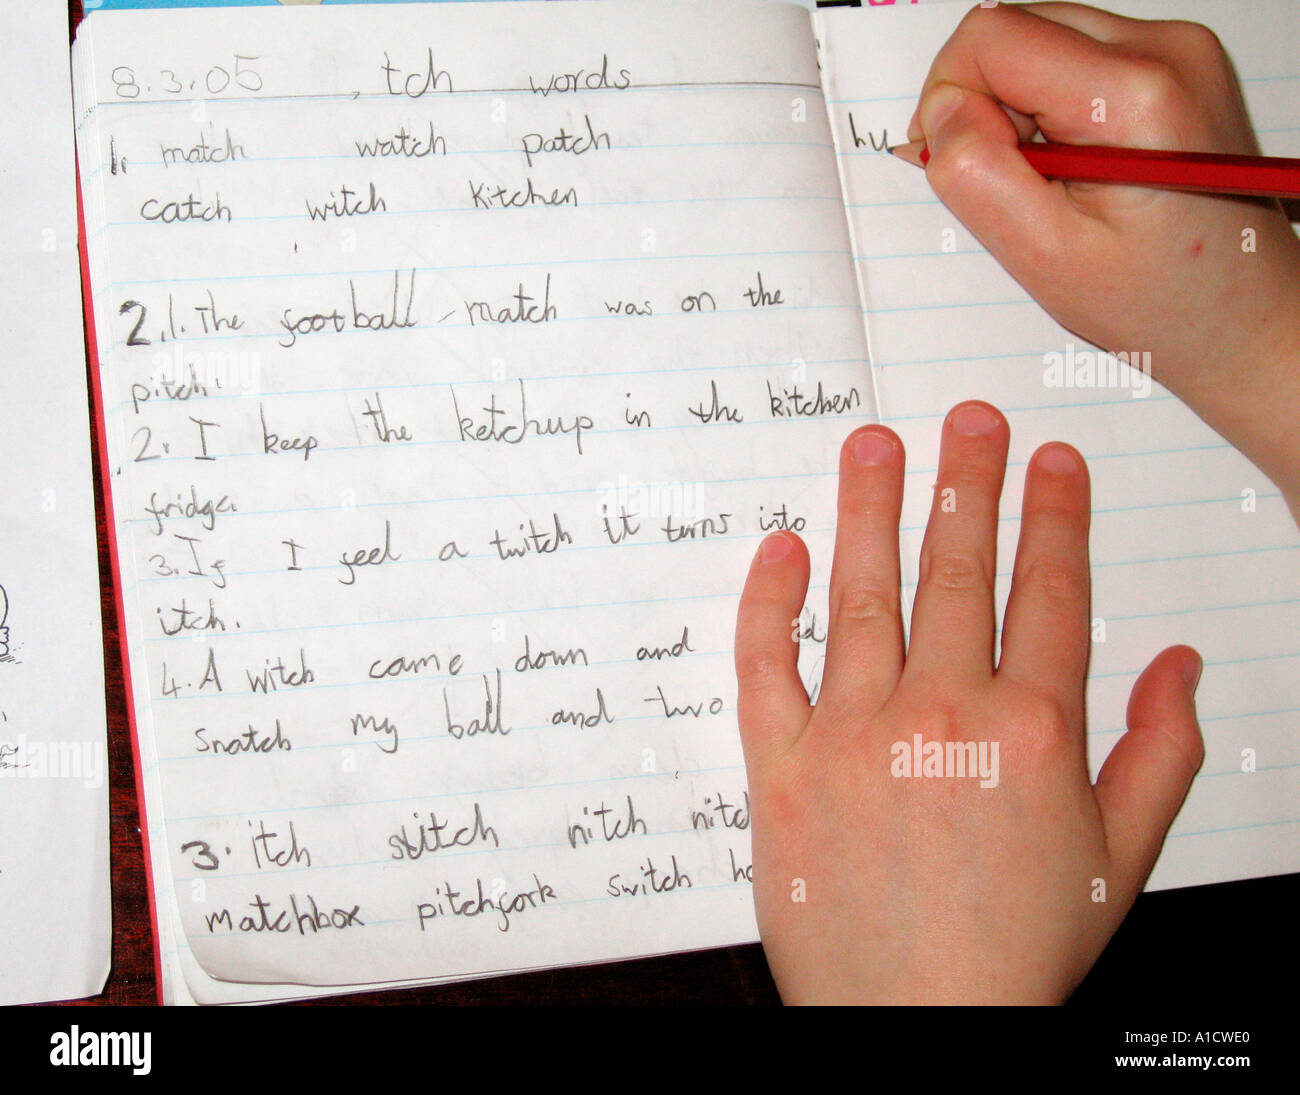 8.3.05 tch words
1. match watch patch
catch witch kitchen
2.1. The football match was on the
pitch.
2. I keep the ketchup in the kitchen
fridge.
3. If I feel a twitch it turns into
itch.
4. A witch came down and
snatch my ball and two
3. itch stitch nitch
matchbox pitchfork switch
hu
alamy
alamy
alamy
alamy
Image ID: A1CWE0
www.alamy.com